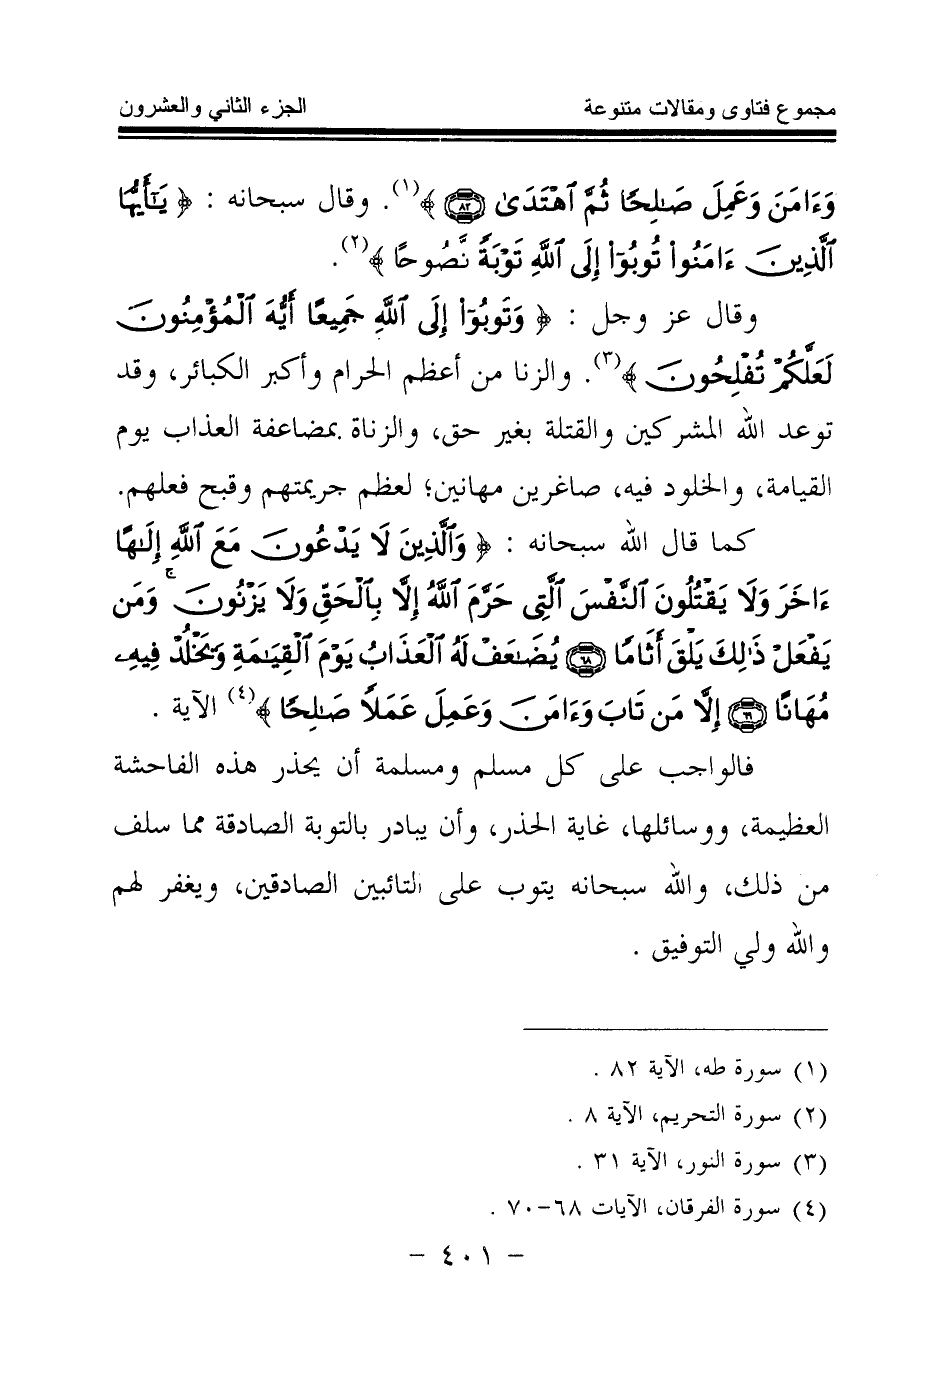 مجموع فتاوى ومقالات متنوعة الجزء الثاني والعشرون
وَءَامَنَ وَعَمِلَ صَـٰلِحًا ثُمَّ ٱهْتَدَىٰ ٨٢ ﴾(١). وقال سبحانه : ﴿ يَـٰٓأَيُّهَا
ٱلَّذِينَ ءَامَنُوا۟ تُوبُوٓا۟ إِلَى ٱللَّهِ تَوْبَةً نَّصُوحًا ﴾(٢).
وقال عز وجل : ﴿ وَتُوبُوٓا۟ إِلَى ٱللَّهِ جَمِيعًا أَيُّهَ ٱلْمُؤْمِنُونَ
لَعَلَّكُمْ تُفْلِحُونَ ﴾(٣). والزنا من أعظم الحرام وأكبر الكبائر، وقد
توعد الله المشركين والقتلة بغير حق، والزناة بمضاعفة العذاب يوم
القيامة، والخلود فيه، صاغرين مهانين؛ لعظم جريمتهم وقبح فعلهم.
كما قال الله سبحانه : ﴿ وَٱلَّذِينَ لَا يَدْعُونَ مَعَ ٱللَّهِ إِلَـٰهًا
ءَاخَرَ وَلَا يَقْتُلُونَ ٱلنَّفْسَ ٱلَّتِى حَرَّمَ ٱللَّهُ إِلَّا بِٱلْحَقِّ وَلَا يَزْنُونَ ۚ وَمَن
يَفْعَلْ ذَٰلِكَ يَلْقَ أَثَامًا ٦٨ يُضَـٰعَفْ لَهُ ٱلْعَذَابُ يَوْمَ ٱلْقِيَـٰمَةِ وَيَخْلُدْ فِيهِۦ
مُهَانًا ٦٩ إِلَّا مَن تَابَ وَءَامَنَ وَعَمِلَ عَمَلًا صَـٰلِحًا ﴾(٤) الآية .
فالواجب على كل مسلم ومسلمة أن يحذر هذه الفاحشة
العظيمة، ووسائلها، غاية الحذر، وأن يبادر بالتوبة الصادقة مما سلف
من ذلك، والله سبحانه يتوب على التائبين الصادقين، ويغفر لهم
والله ولي التوفيق .
(١) سورة طه، الآية ٨٢ .
(٢) سورة التحريم، الآية ٨ .
(٣) سورة النور، الآية ٣١ .
(٤) سورة الفرقان، الآيات ٦٨-٧٠ .
- ٤٠١ -